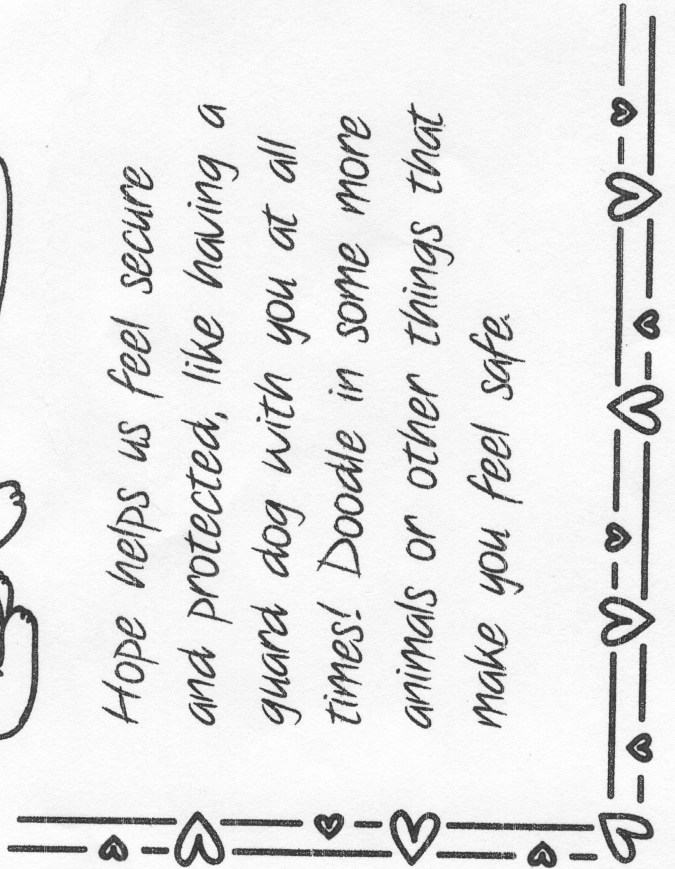 Hope helps us feel secure
and protected, like having a
guard dog with you at all
times! Doodle in some more
animals or other things that
make you feel safe.